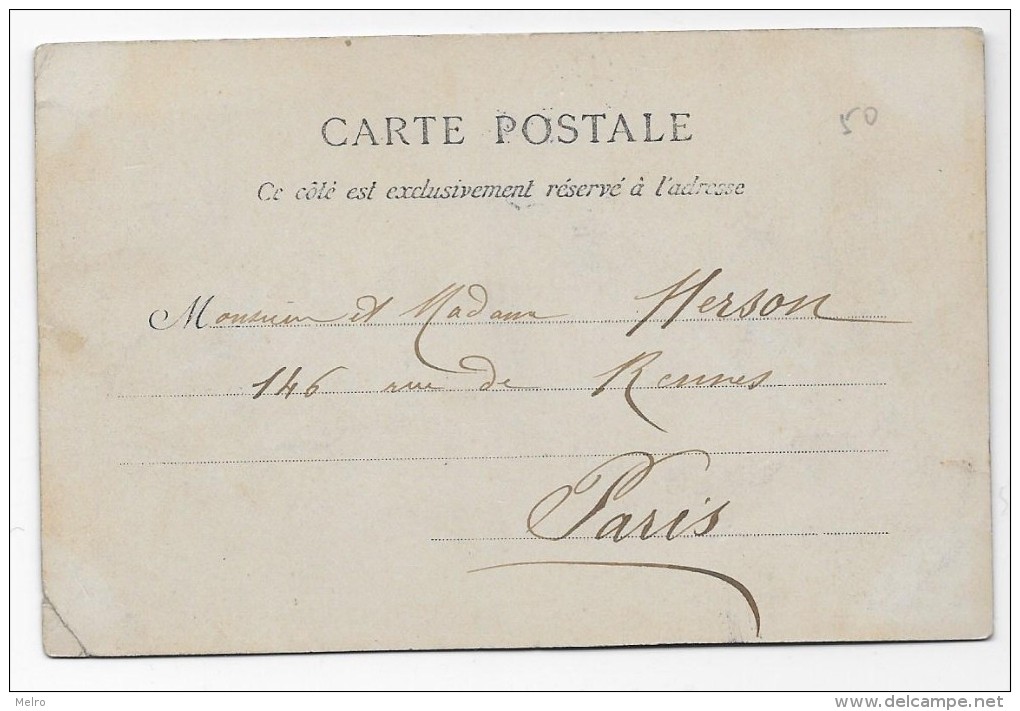 50
CARTE POSTALE
Ce côté est exclusivement réservé à l'adresse
Monsieur et Madame Herson
146 rue de Rennes
Paris
Melro
www.delcampe.net